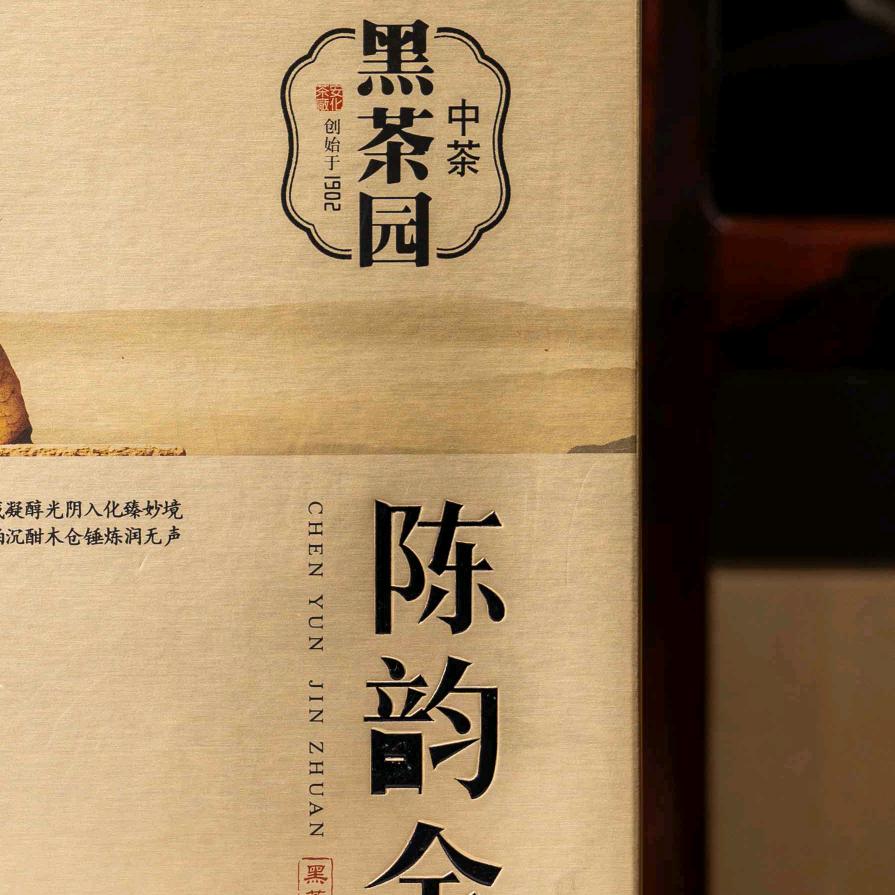 黑茶园
中茶
安化茶厂
创始于1902
凝醇光阴入化臻妙境
沉酣木仓锤炼润无声
陈韵金
CHEN YUN JIN ZHUAN
黑